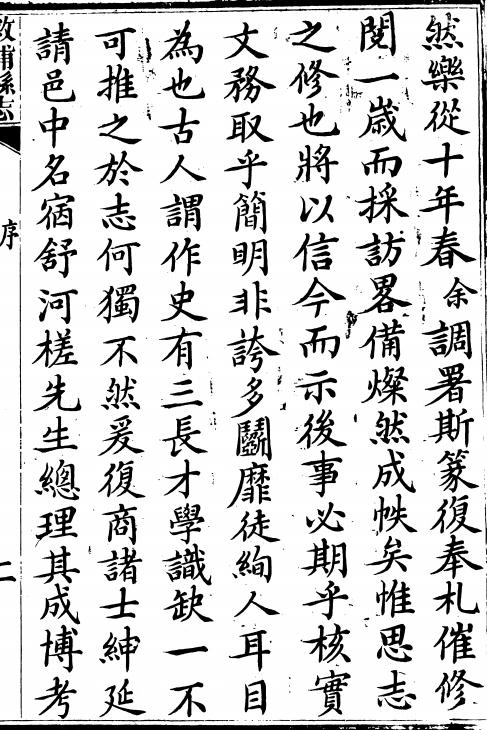 然樂從十年春余調署斯篆復奉札催修
閱一歲而採訪畧備燦然成帙矣惟思志
之修也將以信今而示後事必期乎核實
文務取乎簡明非誇多鬭靡徒絢人耳目
為也古人謂作史有三長才學識缺一不
可推之於志何獨不然爰復商諸士紳延
請邑中名宿舒河槎先生總理其成博考
序
二